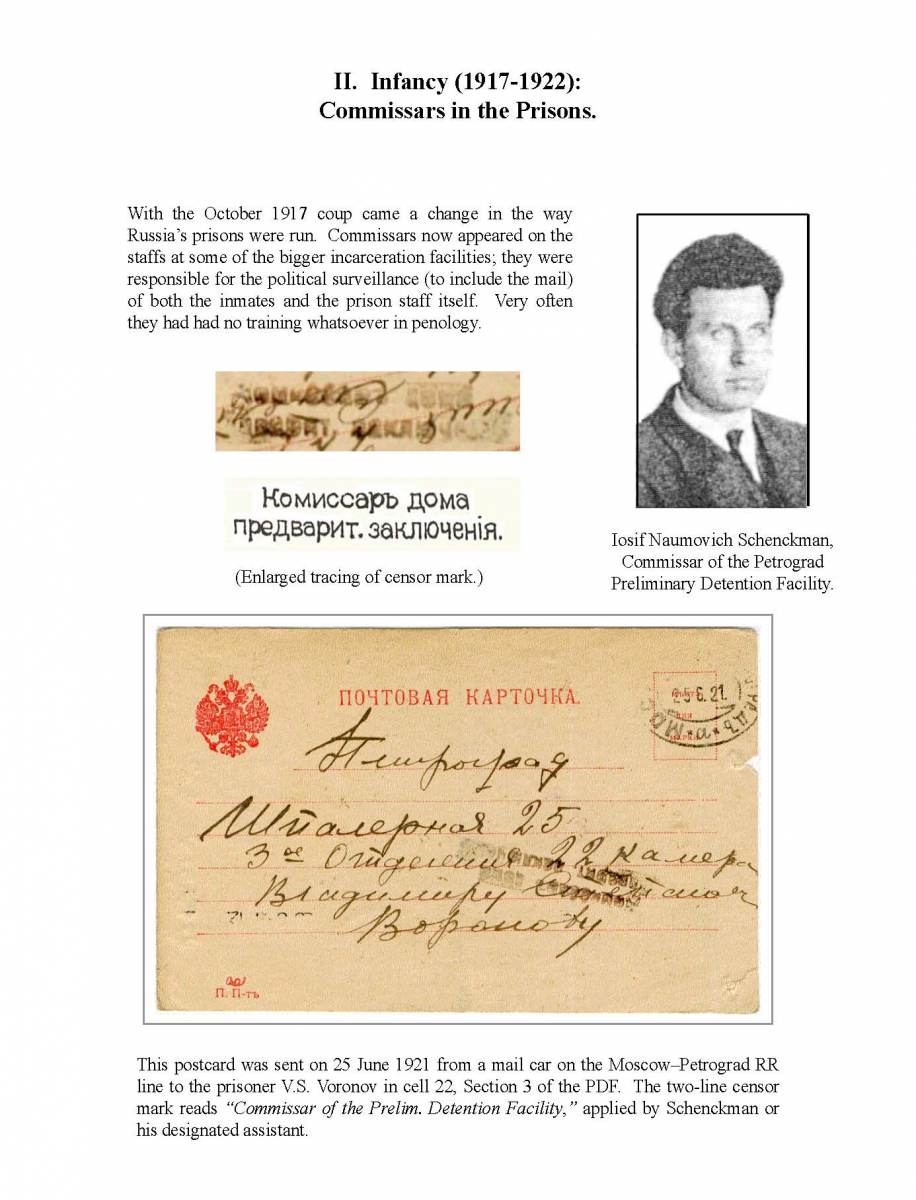 II. Infancy (1917-1922):
Commissars in the Prisons.
With the October 1917 coup came a change in the way
Russia's prisons were run. Commissars now appeared on the
staffs at some of the bigger incarceration facilities; they were
responsible for the political surveillance (to include the mail)
of both the inmates and the prison staff itself. Very often
they had had no training whatsoever in penology.
Комиссаръ дома
предварит. заключенія.
(Enlarged tracing of censor mark.)
Iosif Naumovich Schenckman,
Commissar of the Petrograd
Preliminary Detention Facility.
ПОЧТОВАЯ КАРТОЧКА.
25.6.21.
Петроград
Шпалерная 25
3ое Отделения 22 камера
Владимиру
Воронову
П. П-тъ
This postcard was sent on 25 June 1921 from a mail car on the Moscow–Petrograd RR
line to the prisoner V.S. Voronov in cell 22, Section 3 of the PDF. The two-line censor
mark reads “Commissar of the Prelim. Detention Facility,” applied by Schenckman or
his designated assistant.